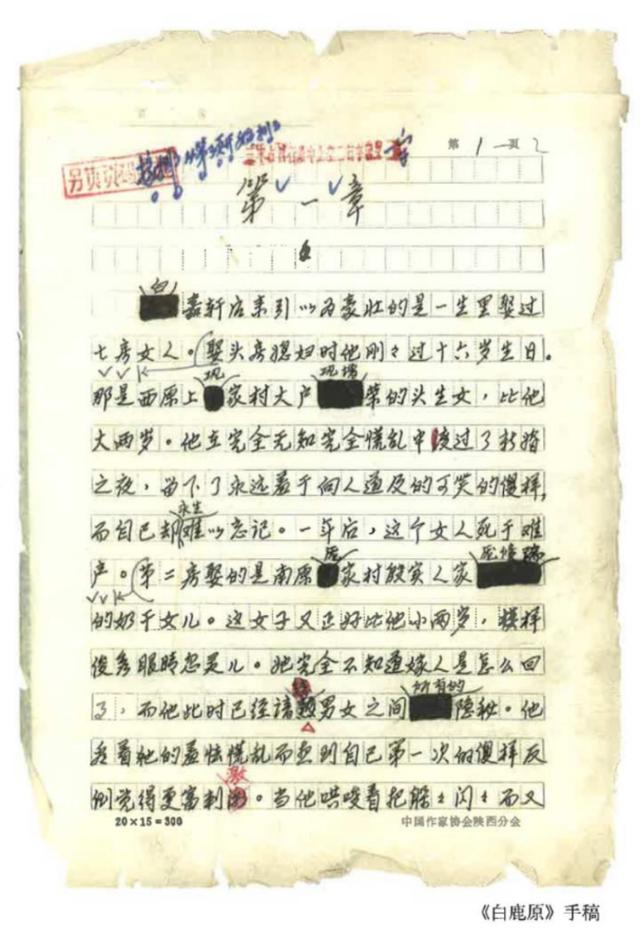 第1—页2
第一章
白
嘉轩后来引以为豪壮的是一生里娶过
七房女人。娶头房媳妇时他刚刚过十六岁生日。
巩 巩增
那是西原上家村大户荣的头生女,比他
大两岁。他在完全无知完全慌乱中度过了新婚
之夜,留下了永远羞于向人道及的可笑的傻样,
永生
而自己却难以忘记。一年后,这个女人死于难
庞 庞修瑞
产。第二房娶的是南原家村殷实人家
的奶干女儿。这女子又正好比他小两岁,模样
俊秀眼睛忽灵儿。她完全不知道嫁人是怎么回
所有的
了,而他此时已经谙男女之间隐秘。他
看着她的羞怯慌乱而想到自己第一次的傻样反
激
倒觉得更富刺。当他哄唆着把躲躲闪闪而又
20×15=300 中国作家协会陕西分会
《白鹿原》手稿